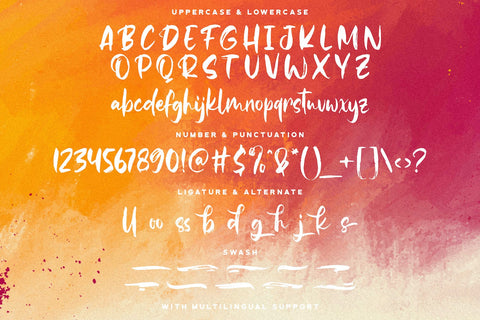 UPPERCASE & LOWERCASE
ABCDEFGHIJKLMN
OPQRSTUVWXYZ
abcdefghijklmnopqrstuvwxyz
NUMBER & PUNCTUATION
1234567890!@#$%^&*()_+[]\<>?
LIGATURE & ALTERNATE
ll oo ss b d g h j k s
SWASH
WITH MULTILINGUAL SUPPORT